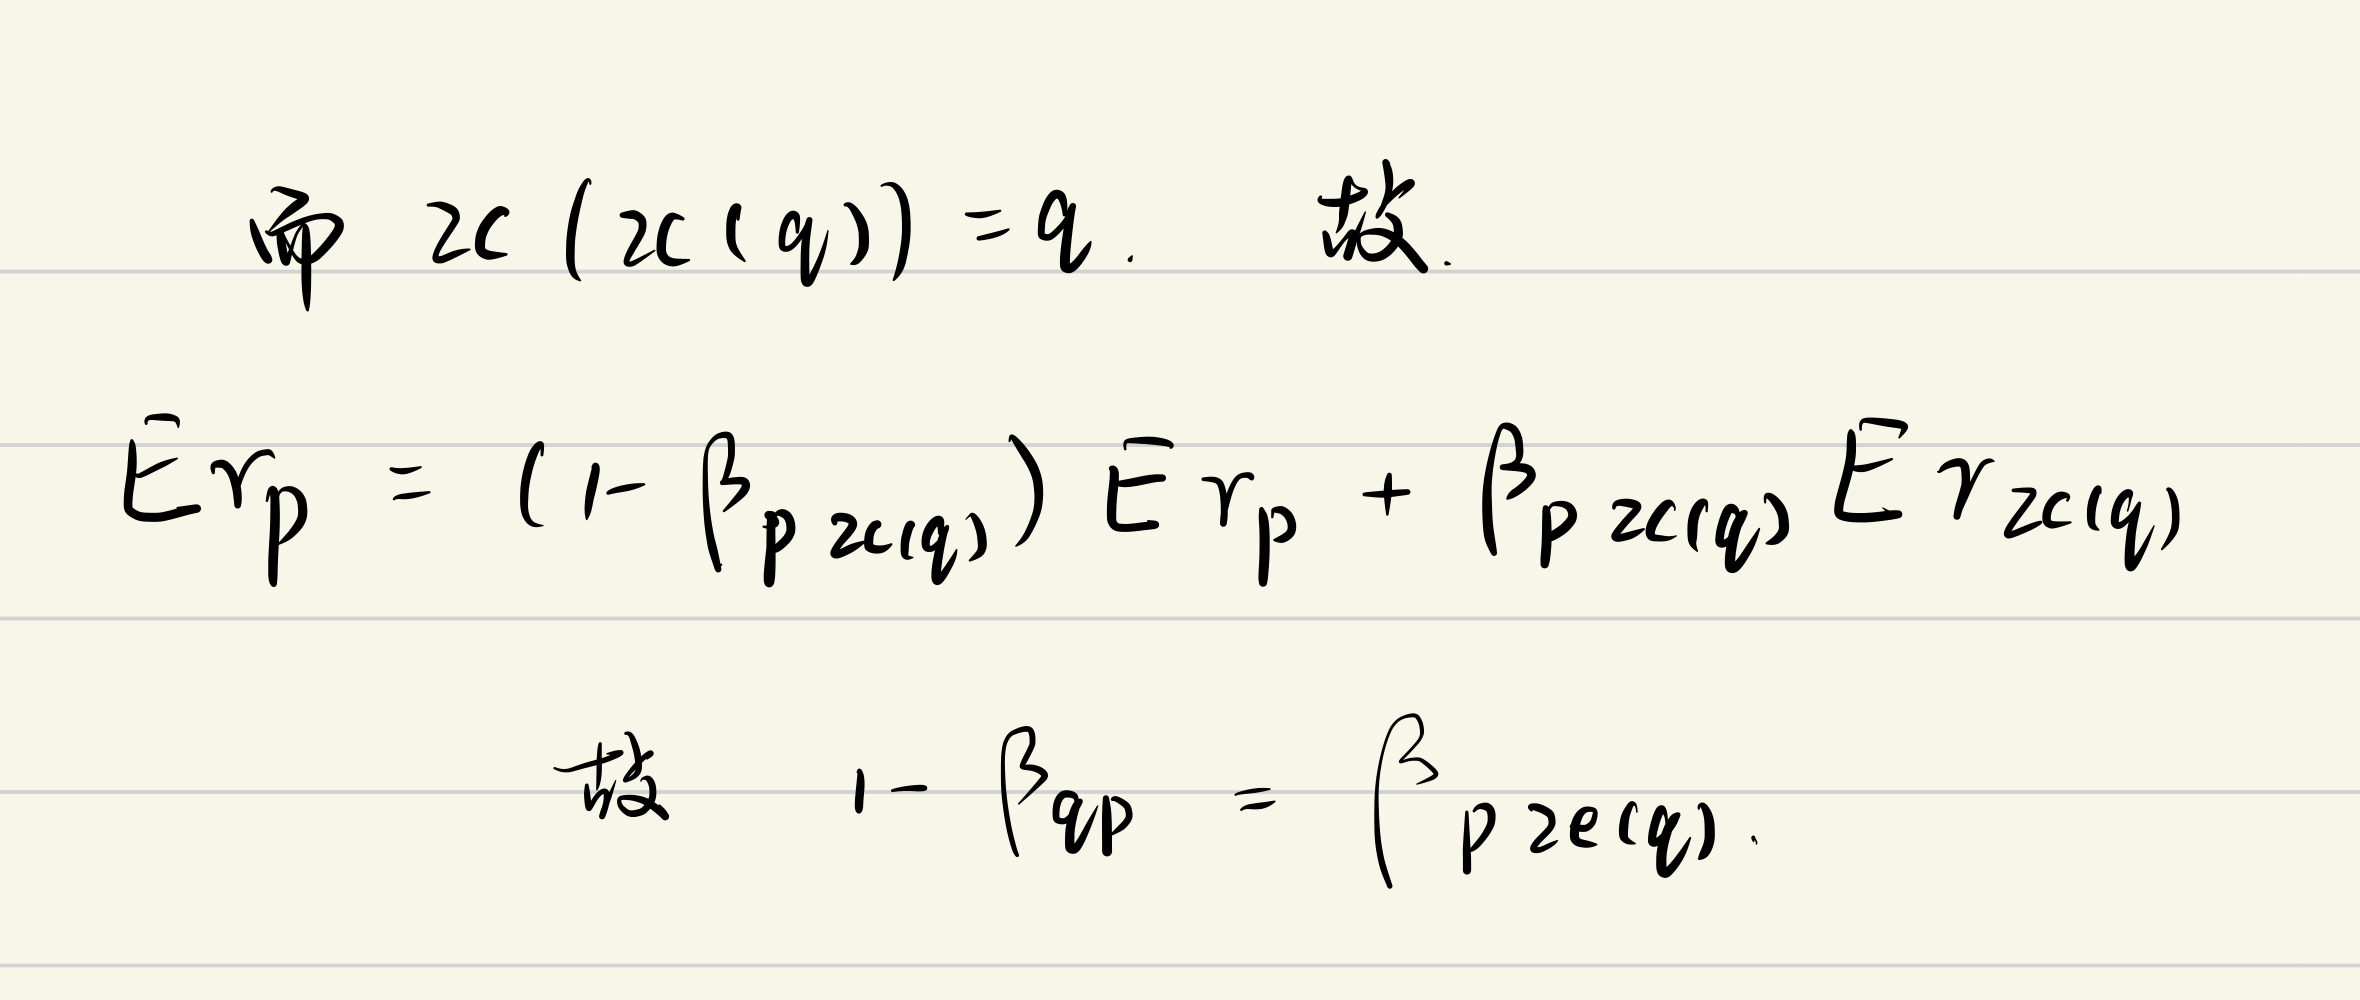 而 zc(zc(q)) = q. 故.
Ērp = (1-βp zc(q)) Ērp + βp zc(q) Ērzc(q)
故 1-βqp = βp zc(q).